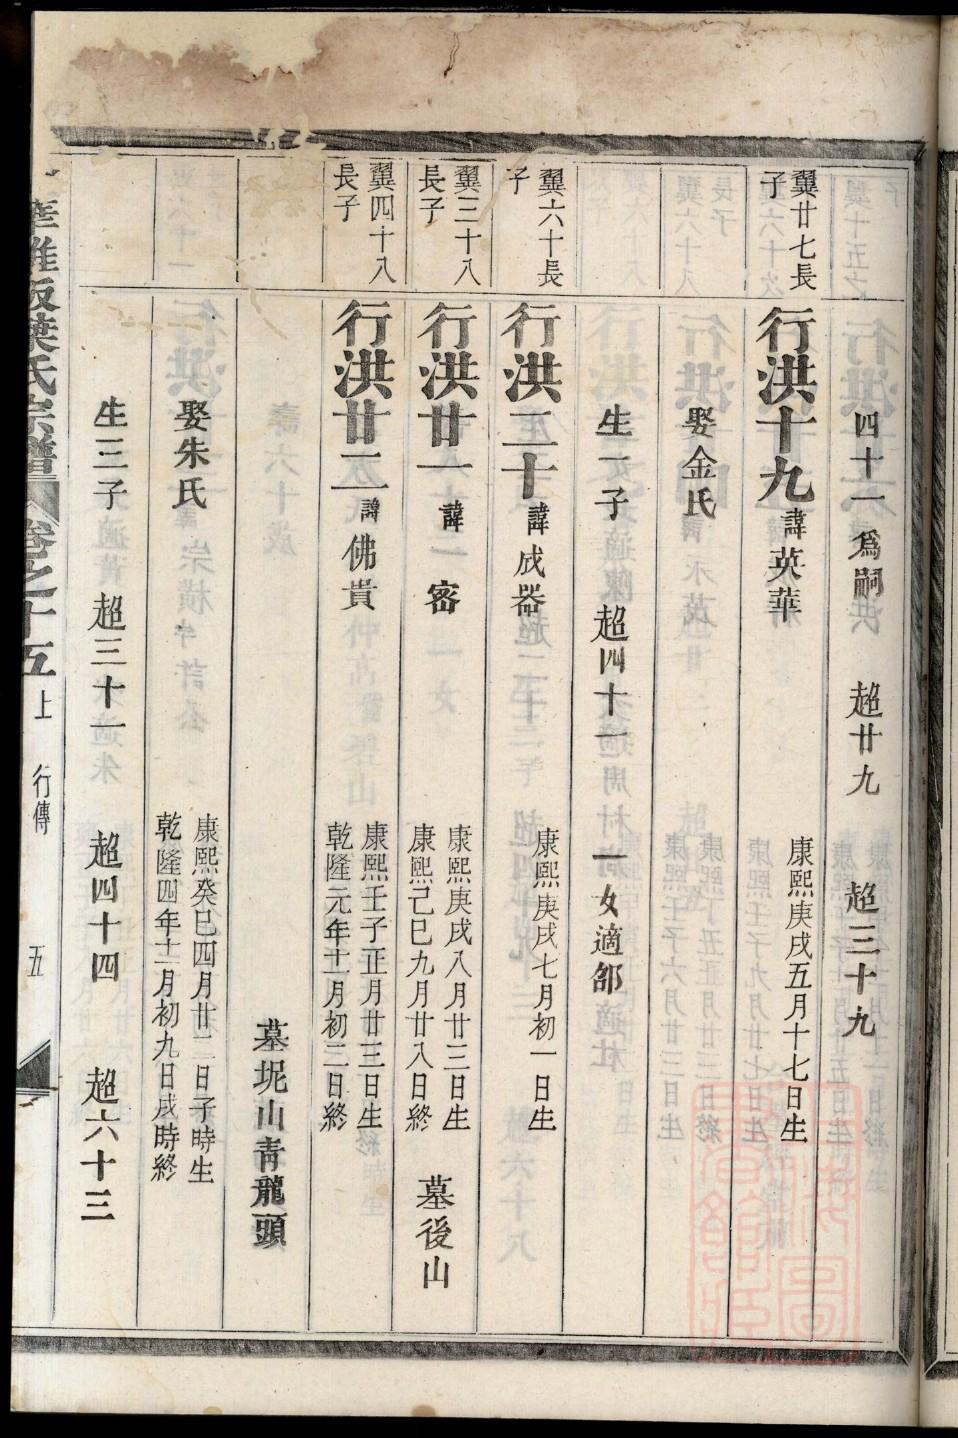 四十一爲嗣 超廿九 超三十九
翼廿七長子
行洪十九 諱英華 康熙庚戌五月十七日生
娶金氏
生一子 超四十一 一女適郐
翼六十長子
行洪二十 諱成器 康熙庚戌七月初一日生
翼三十八長子
行洪廿一 諱密 康熙庚戌八月廿三日生
康熙己巳九月廿八日終 墓後山
翼四十八長子
行洪廿二 諱佛貴 康熙壬子正月廿三日生
乾隆元年十一月初二日終
墓坭山青龍頭
娶朱氏 康熙癸巳四月廿二日子時生
乾隆四年十二月初九日戌時終
生三子 超三十一 超四十四 超六十三
葉氏宗譜 卷之十五上 行傳 五